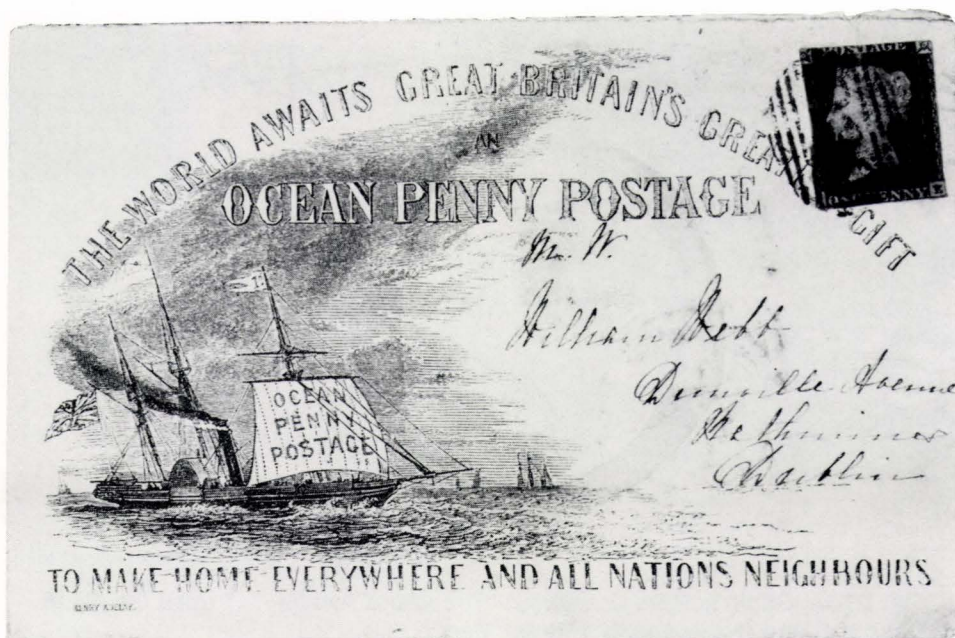 THE WORLD AWAITS GREAT BRITAIN'S GREAT GIFT
AN
OCEAN PENNY POSTAGE
POSTAGE
ONE PENNY
E
Mr. W.
William Webb
Dunville Avenue
Rathmines
Dublin
OCEAN
PENNY
POSTAGE
TO MAKE HOME EVERYWHERE AND ALL NATIONS NEIGHBOURS